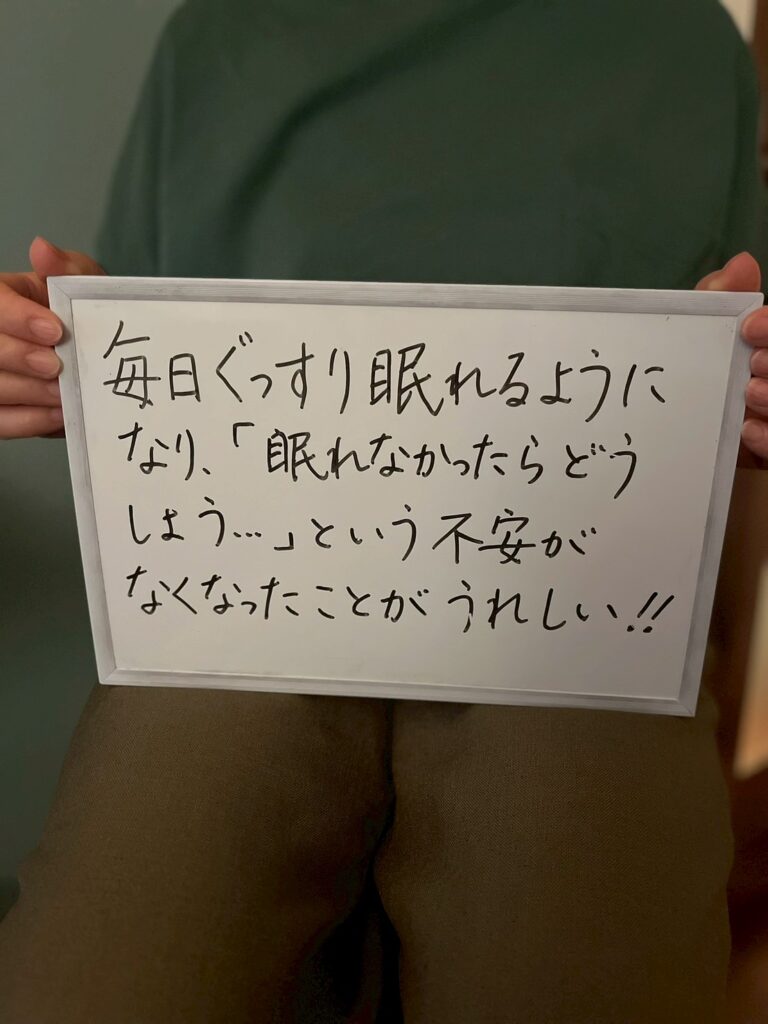 毎日ぐっすり眠れるように
なり、「眠れなかったらどう
しよう…」という不安が
なくなったことがうれしい!!